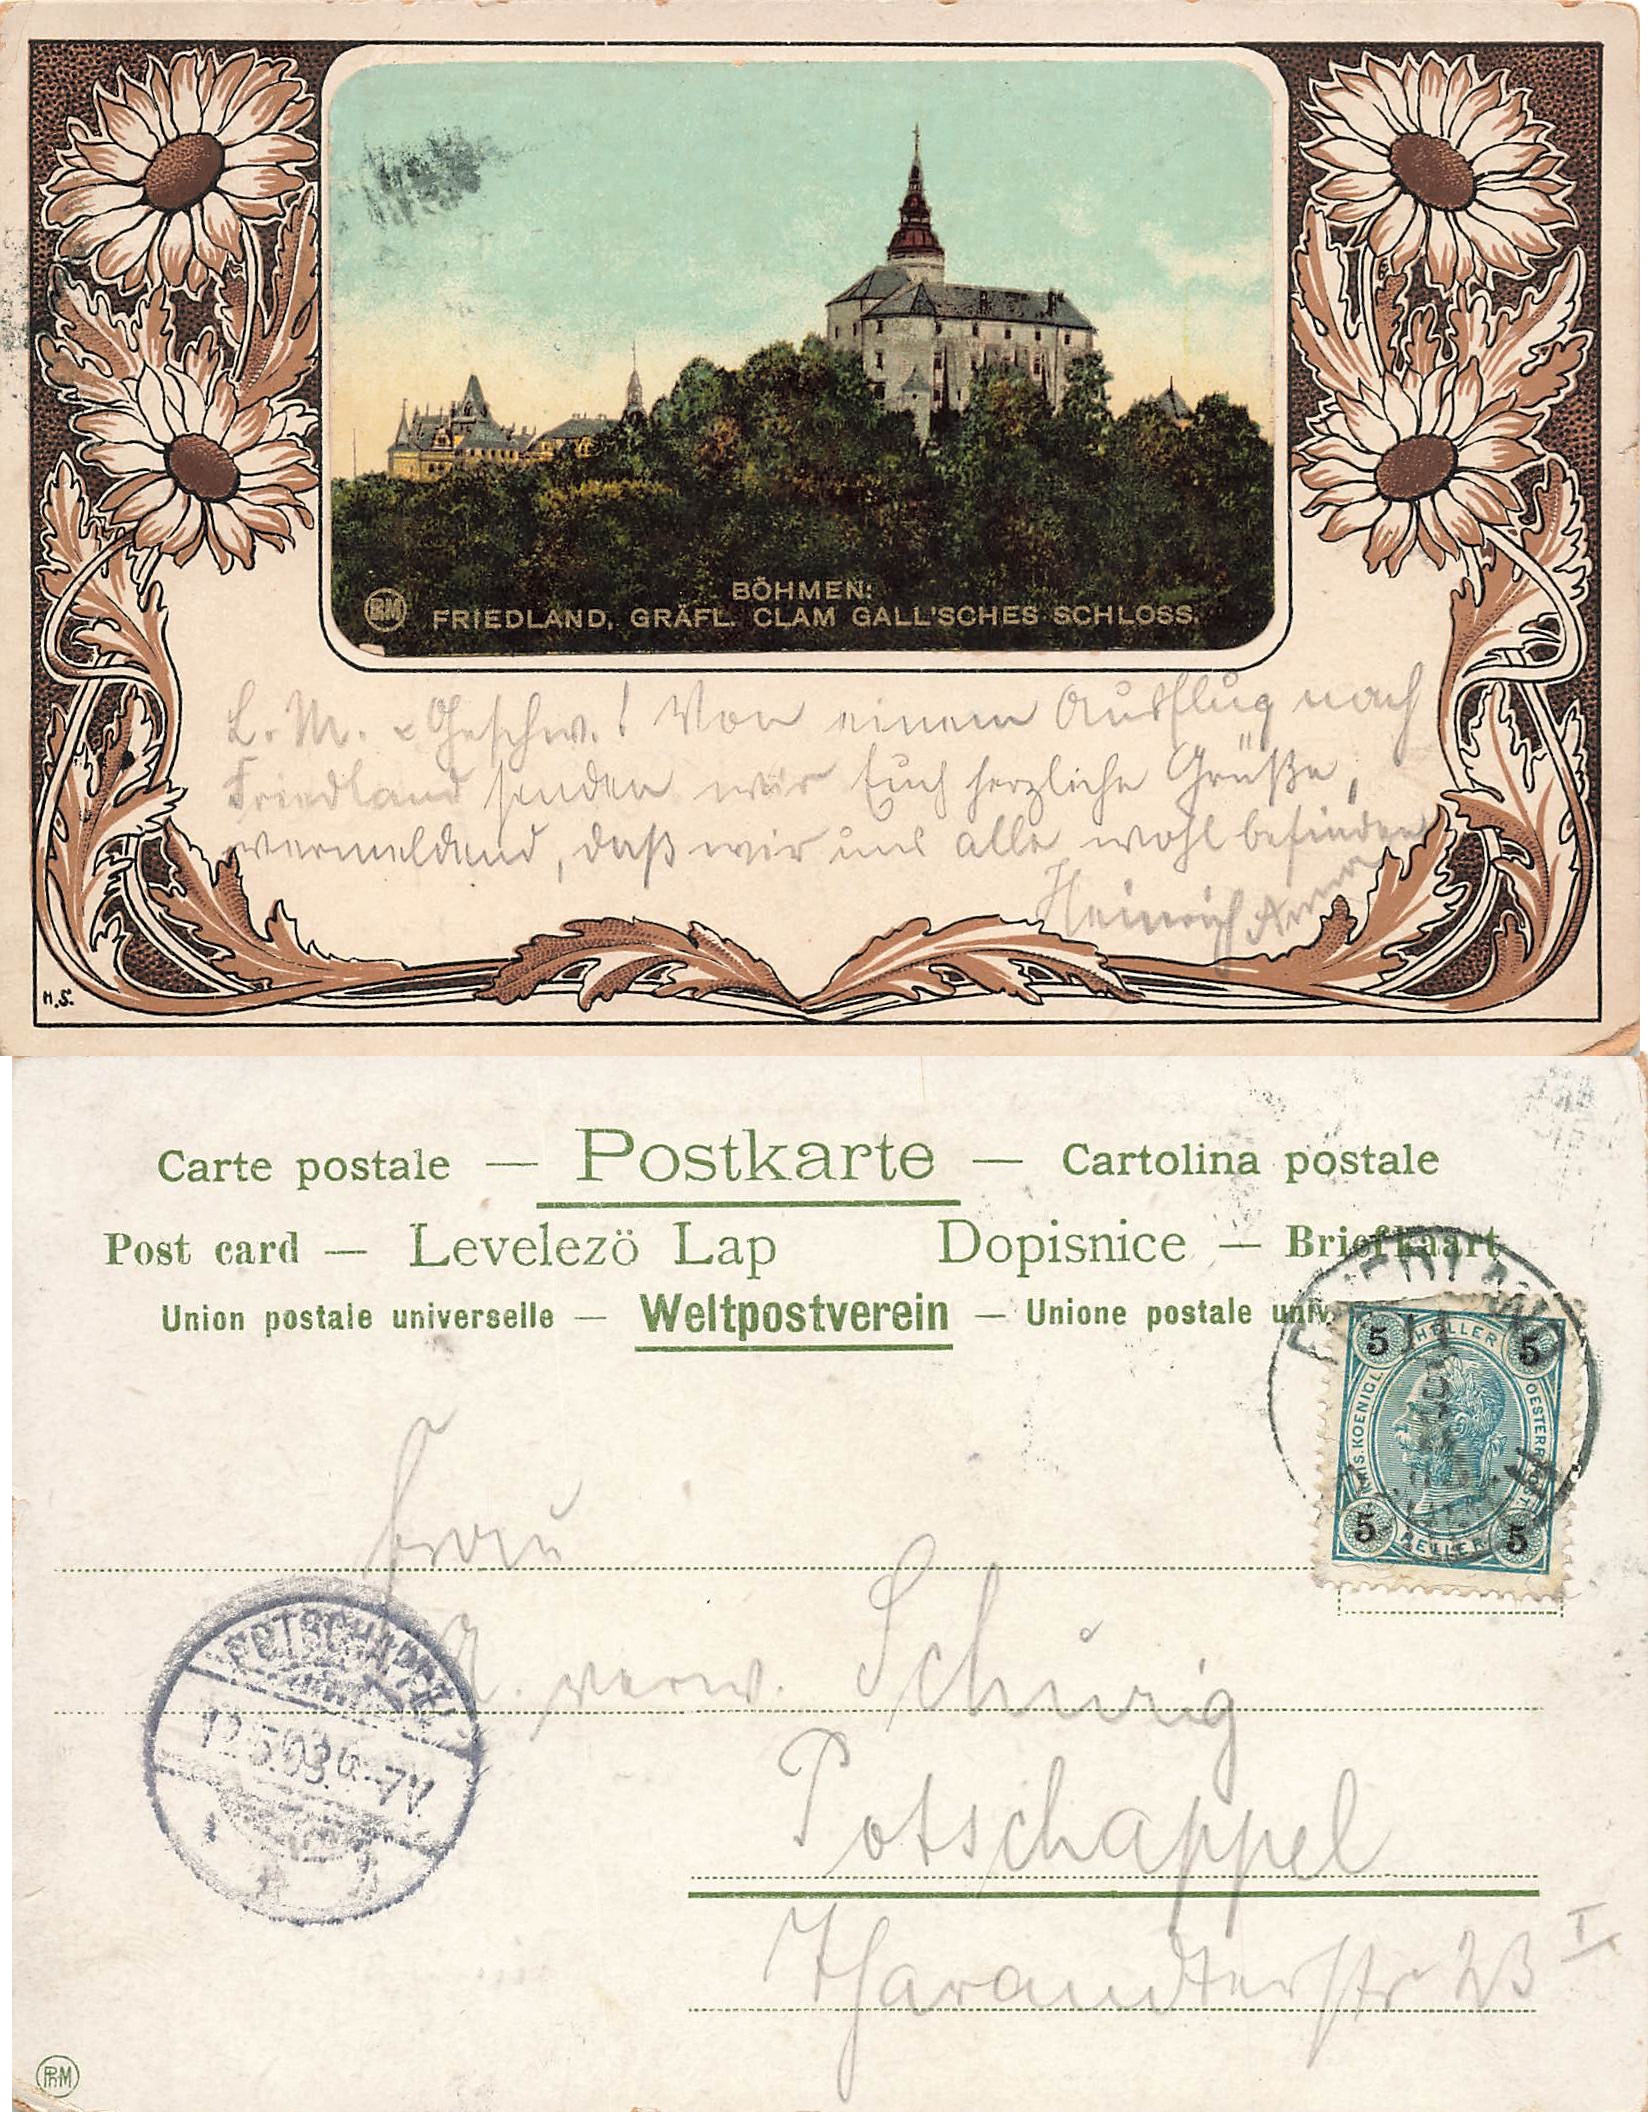 BÖHMEN:
FRIEDLAND, GRÄFL. CLAM GALL'SCHES SCHLOSS.
L. M. u Geschw.! Von einem Ausflug nach
Friedland senden wir Euch herzliche Grüße,
vermeldend, daß wir uns alle wohl befinden
Heinrich
H.S.
Carte postale — Postkarte — Cartolina postale
Post card — Levelezö Lap Dopisnice — Briefkaart
Union postale universelle — Weltpostverein — Unione postale univ.
FRIEDLAND
5 HELLER 5
KAIS. KOENIGL. OESTERR. POST.
5 HELLER 5
Frau
A. verw. Schurig
POTSCHAPPEL
12.5.03
Potschappel
Tharandterstr 23 I.
PhM